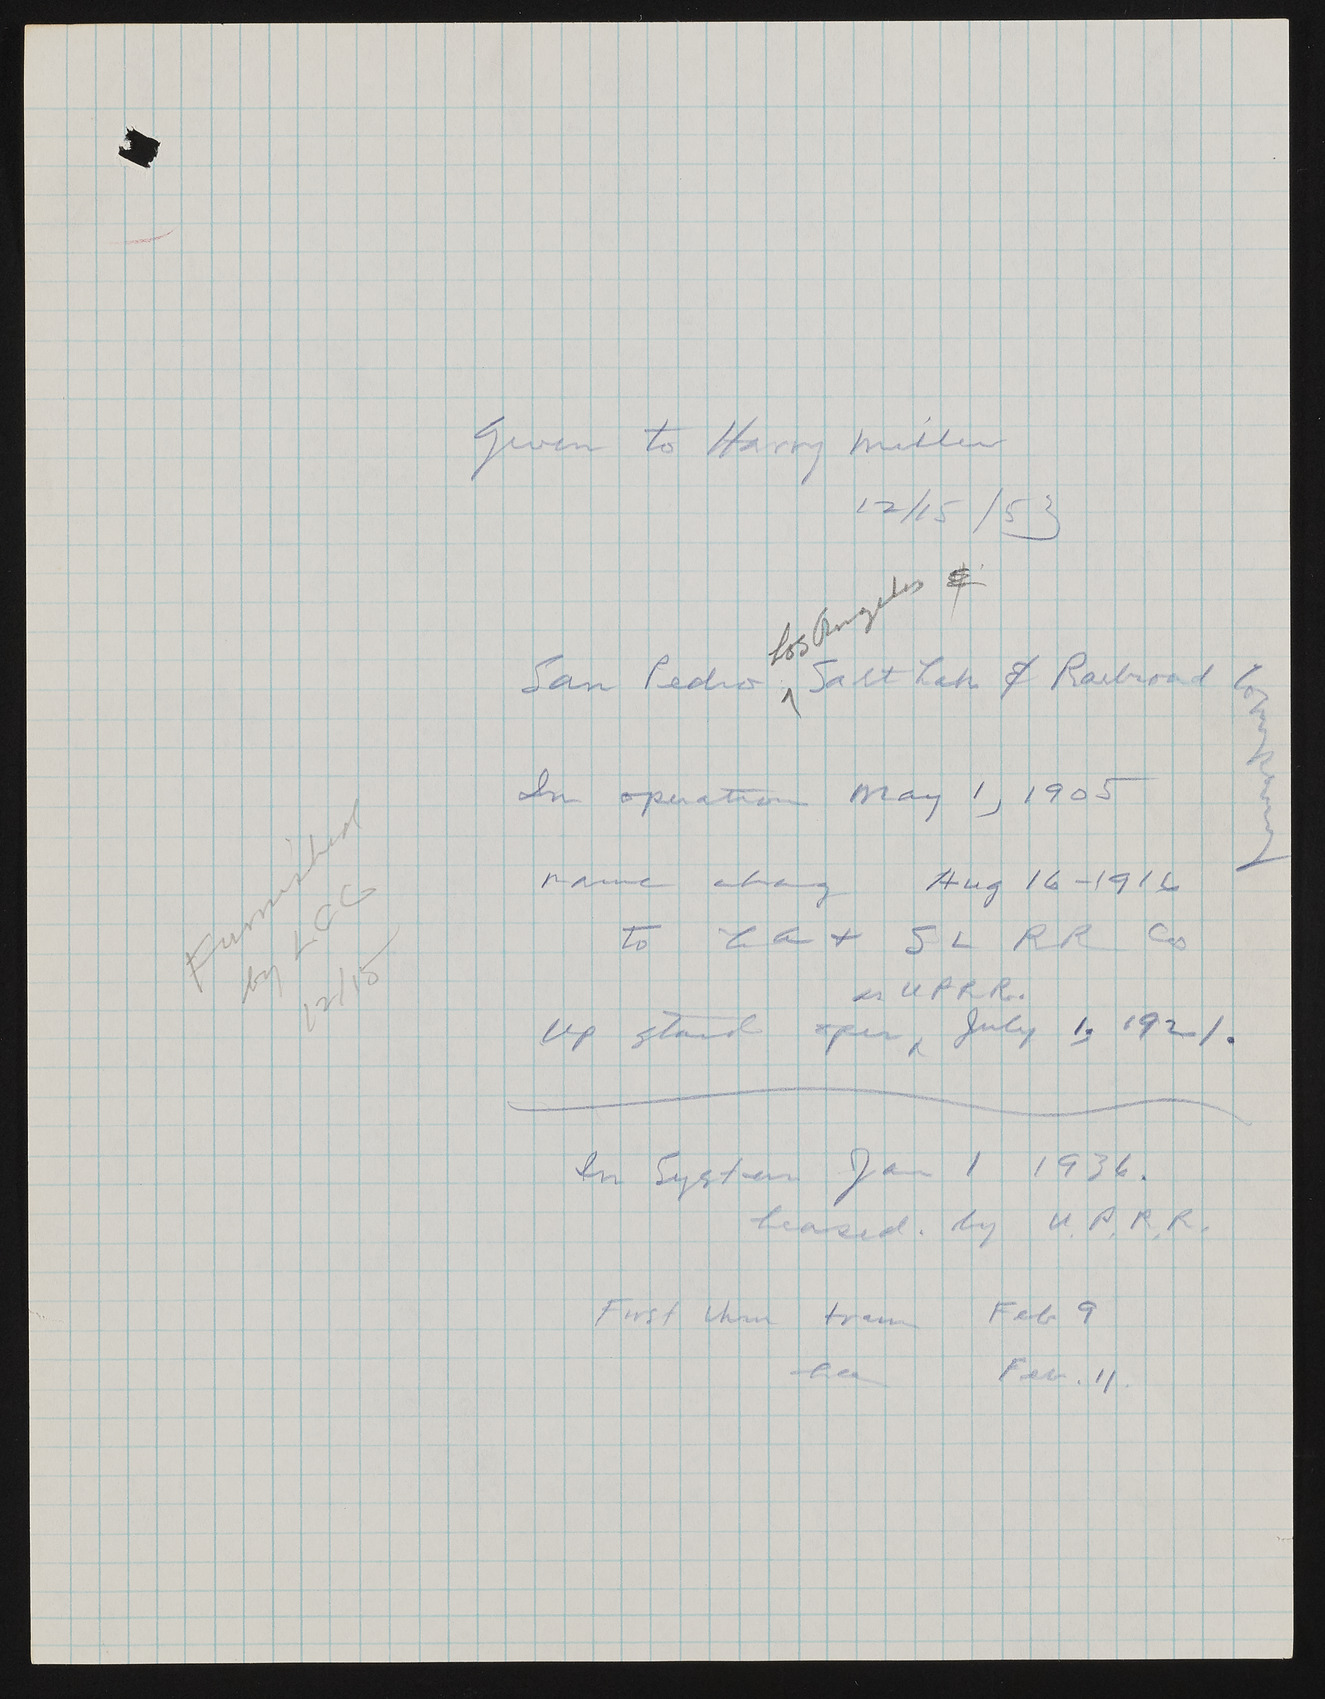 Given to Harry Miller
12/15/53
Los Angeles &
San Pedro, Salt Lake & Railroad Company
In operation May 1, 1905
name chang Aug 16-1916
to LA + SL RR Co
as UPRR.
UP start oper, July 1, 1921.
Furnished
by LCG
12/15
In System Jan 1 1936.
leased. by U.P.R.R.
First thru train Feb 9
Feb. 11.